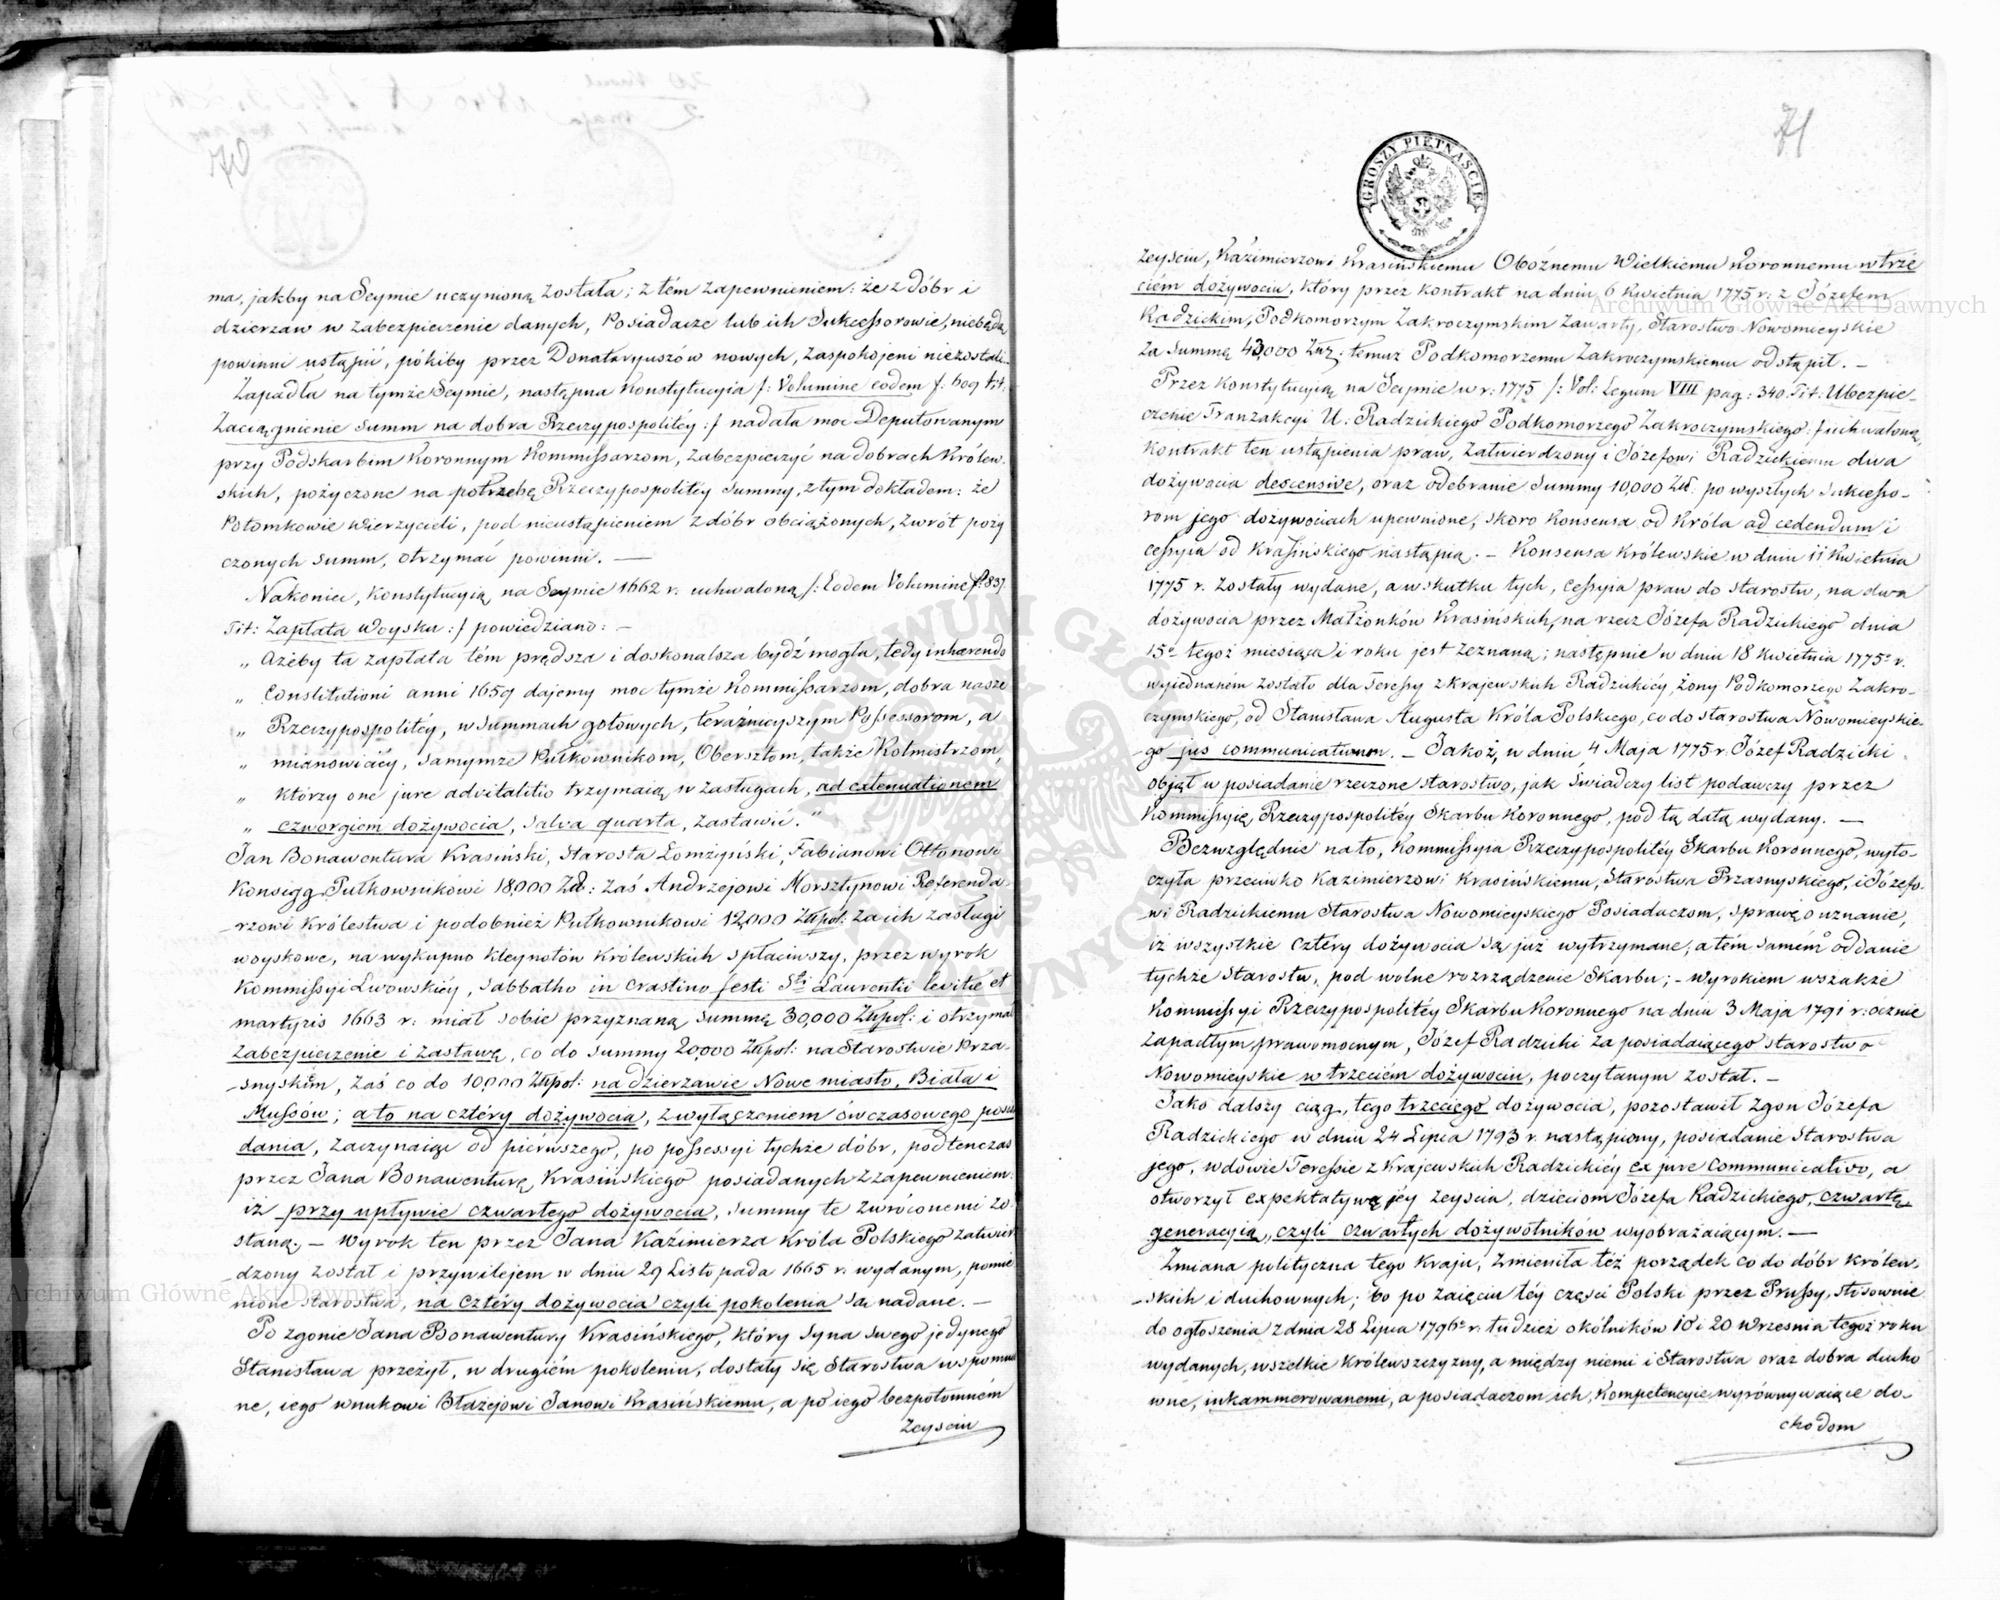 ma, jakby na Seymie uczynioną została; z tém zapewnieniem: że z dóbr i
dzierżaw w zabezpieczenie danych, Posiadacze lub ich Sukcessorowie, niebędą
powinni ustąpić, pókiby przez Donataryuszów nowych, zaspokojeni niezostali.
Zapadła na tymże Seymie, następna Konstytucyia /: Volumine eodem f: 609 tit:
Zaciągnienie summ na dobra Rzeczypospolitéy :/ nadała moc Deputowanym
przy Podskarbim Koronnym Kommissarzom, zabezpieczyć na dobrach Królew-
skich, pożyczone na potrzebę Rzeczypospolitéy summy, z tym dokładem: że
Potomkowie Wierzycieli, pod nieustąpieniem z dóbr obciążonych, zwrót poży
czonych summ, otrzymać powinni. —
Nakoniec, Konstytucyią na Seymie 1662 r. uchwaloną /: Eodem Volumine f: 837.
Tit: Zapłata Woysku :/ powiedziano: —
„ Ażeby ta zapłata tém prędsza i doskonalsza bydź mogła, tedy inhærendo
„ Constitutioni anni 1659 dajemy moc tymże Kommissarzom, dobra nasze
„ Rzeczypospolitéy, w summach gotowych, teraźnieyszym Possessorom, a
„ mianowiciéy, samymże Pułkownikom, Obersztom, także Rotmistrzom,
„ którzy one jure advitalitio trzymaią w zasługach, ad extenuationem
„ czworgiem dożywocia, salva quarta, zastawić. "
Jan Bonawentura Krasiński, Starosta Łomżyński, Fabianowi Ottonowi
Konsigg Pułkownikówi 18,000 Zł: zaś Andrzejowi Morsztynowi Referenda-
rzowi Królestwa i podobnież Pułkownikowi 12,000 Złpol: za ich zasługi
woyskowe, na wykupno kleynotów Królewskich spłaciwszy, przez wyrok
Kommissyi Lwowskiéy, sabbatho in crastino festi Sti Laurentii levitæ et
martyris 1663 r: miał sobie przyznaną summę 30,000 Złpol: i otrzymał
zabezpieczenie i zastawę, co do summy 20,000 Złpol: na Starostwie Prza-
snyskim, zaś co do 10,000 Złpol: na dzierżawie Nowe miasto, Biała i
Mussów; a to na cztéry dożywocia, z wyłączeniem ówczasowego posia
dania, zaczynaiąc od piérwszego, po possessyi tychże dóbr, podtenczas
przez Jana Bonawenturę Krasińskiego posiadanych z zapewnieniem:
iż przy upływie czwartego dożywocia, summy te zwróconemi zo-
staną. — Wyrok ten przez Jana Kaźimierza Króla Polskiego zatwier
dzony został i przywilejem w dniu 29 Listopada 1665 r. wydanym, pomie
nione starostwa, na cztéry dożywocia czyli pokolenia są nadane. —
Po zgonie Jana Bonawentury Krasińskiego, który syna swego jedynego
Stanisława przeżył, w drugiém pokoleniu, dostały się Starostwa wspomnio
ne, iego wnukowi Błażejowi Janowi Krasińskiemu, a po iego bezpotomném
Zeyściu
71
GROSZY PIĘTNAŚCIE
zeyściu, Kaźimierzowi Krasińskiemu Oboźnemu Wielkiemu Koronnemu w trze
ciém dożywociu, który przez kontrakt na dniu 6 Kwietnia 1775 r: z Józefem
Radzickim, Podkomorzym Zakroczymskim zawarty, Starostwo Nowomieyskie
za summę 43,000 Złp: temuż Podkomorzemu Zakroczymskiemu odstąpił. —
Przez Konstytucyią na Seymie w r: 1775 /: Vol: Legum VIII pag: 340. Tit: Ubezpie-
czenie Tranzakcyi U: Radzickiego Podkomorzego Zakroczymskiego :/ uchwaloną,
kontrakt ten ustąpienia praw, zatwierdzony i Józefowi Radzickiemu dwa
dożywocia descensive, oraz odebranie summy 10,000 Zł: po wyszłych Sukcesso-
rom jego dożywociach upewnione, skoro konsensa od Króla ad cedendum i
cessyia od Krasińskiego nastąpią. — Konsensa Królewskie w dniu 11 Kwietnia
1775 r. zostały wydane, a w skutku tych, cessyia praw do starostw, na dwa
dożywocia przez Małżonków Krasińskich, na rzecz Józefa Radzickiego dnia
15º tegoż miesiąca i roku jest zeznaną; następnie w dniu 18 Kwietnia 1775º r.
wyjednaném zostało dla Teressy z Krajewskich Radzickiéy, żony Podkomorzego Zakro-
czymskiego, od Stanisława Augusta Króla Polskiego, co do starostwa Nowomieyskie-
go jus communicativum. — Jakoż, w dniu 4 Maja 1775 r. Józef Radzicki
objął w posiadanie rzeczone starostwo, jak świadczy list podawczy przez
Kommissyię Rzeczypospolitéy Skarbu Koronnego, pod tą datą wydany. —
Bezwzględnie na to, Kommissyia Rzeczypospolitéy Skarbu Koronnego, wyto-
czyła przeciwko Kazimierzowi Krasińskiemu, Starostwa Przasnyskiego, i Józefo-
wi Radzickiemu Starostwa Nowomieyskiego Posiadaczom, sprawę o uznanie,
iż wszystkie cztéry dożywocia są już wytrzymane, a tém samém oddanie
tychże starostw, pod wolne rozrządzenie Skarbu; – wyrokiem wszakże
Kommissyi Rzeczypospolitéy Skarbu Koronnego na dniu 3 Maja 1791 r: ocznie
zapadłym, prawomocnym, Józef Radzicki za posiadaiącego starostwo
Nowomieyskie w trzeciém dożywociu, poczytanym został. —
Jako dalszy ciąg, tego trzeciego dożywocia, pozostawił zgon Józefa
Radzickiego w dniu 24 Lipca 1793 r. nastąpiony, posiadanie Starostwa
jego, wdowie Teressie z Krajewskich Radzickiéy ex jure communicativo, a
otworzył expektatywę jéy zeyścia, dzieciom Józefa Radzickiego, czwartę
generacyią, czyli czwartych dożywotników wyobrażaiącym. —
Zmiana polityczna tego kraju, zmieniła téż porządek co do dóbr królew-
skich i duchownych; bo po zaięciu téy części Polski przez Prussy, stósownie
do ogłoszenia z dnia 28 Lipca 1796º r. tudzież okólników 10 i 20 Września tegoż roku
wydanych, wszelkie Królewszczyzny, a między niemi i Starostwa oraz dobra ducho
wne, inkammerowanemi, a posiadaczom ich, kompetencyie wyrównywaiące do-
chodom
Archiwum Główne Akt Dawnych
Archiwum Główne Akt Dawnych